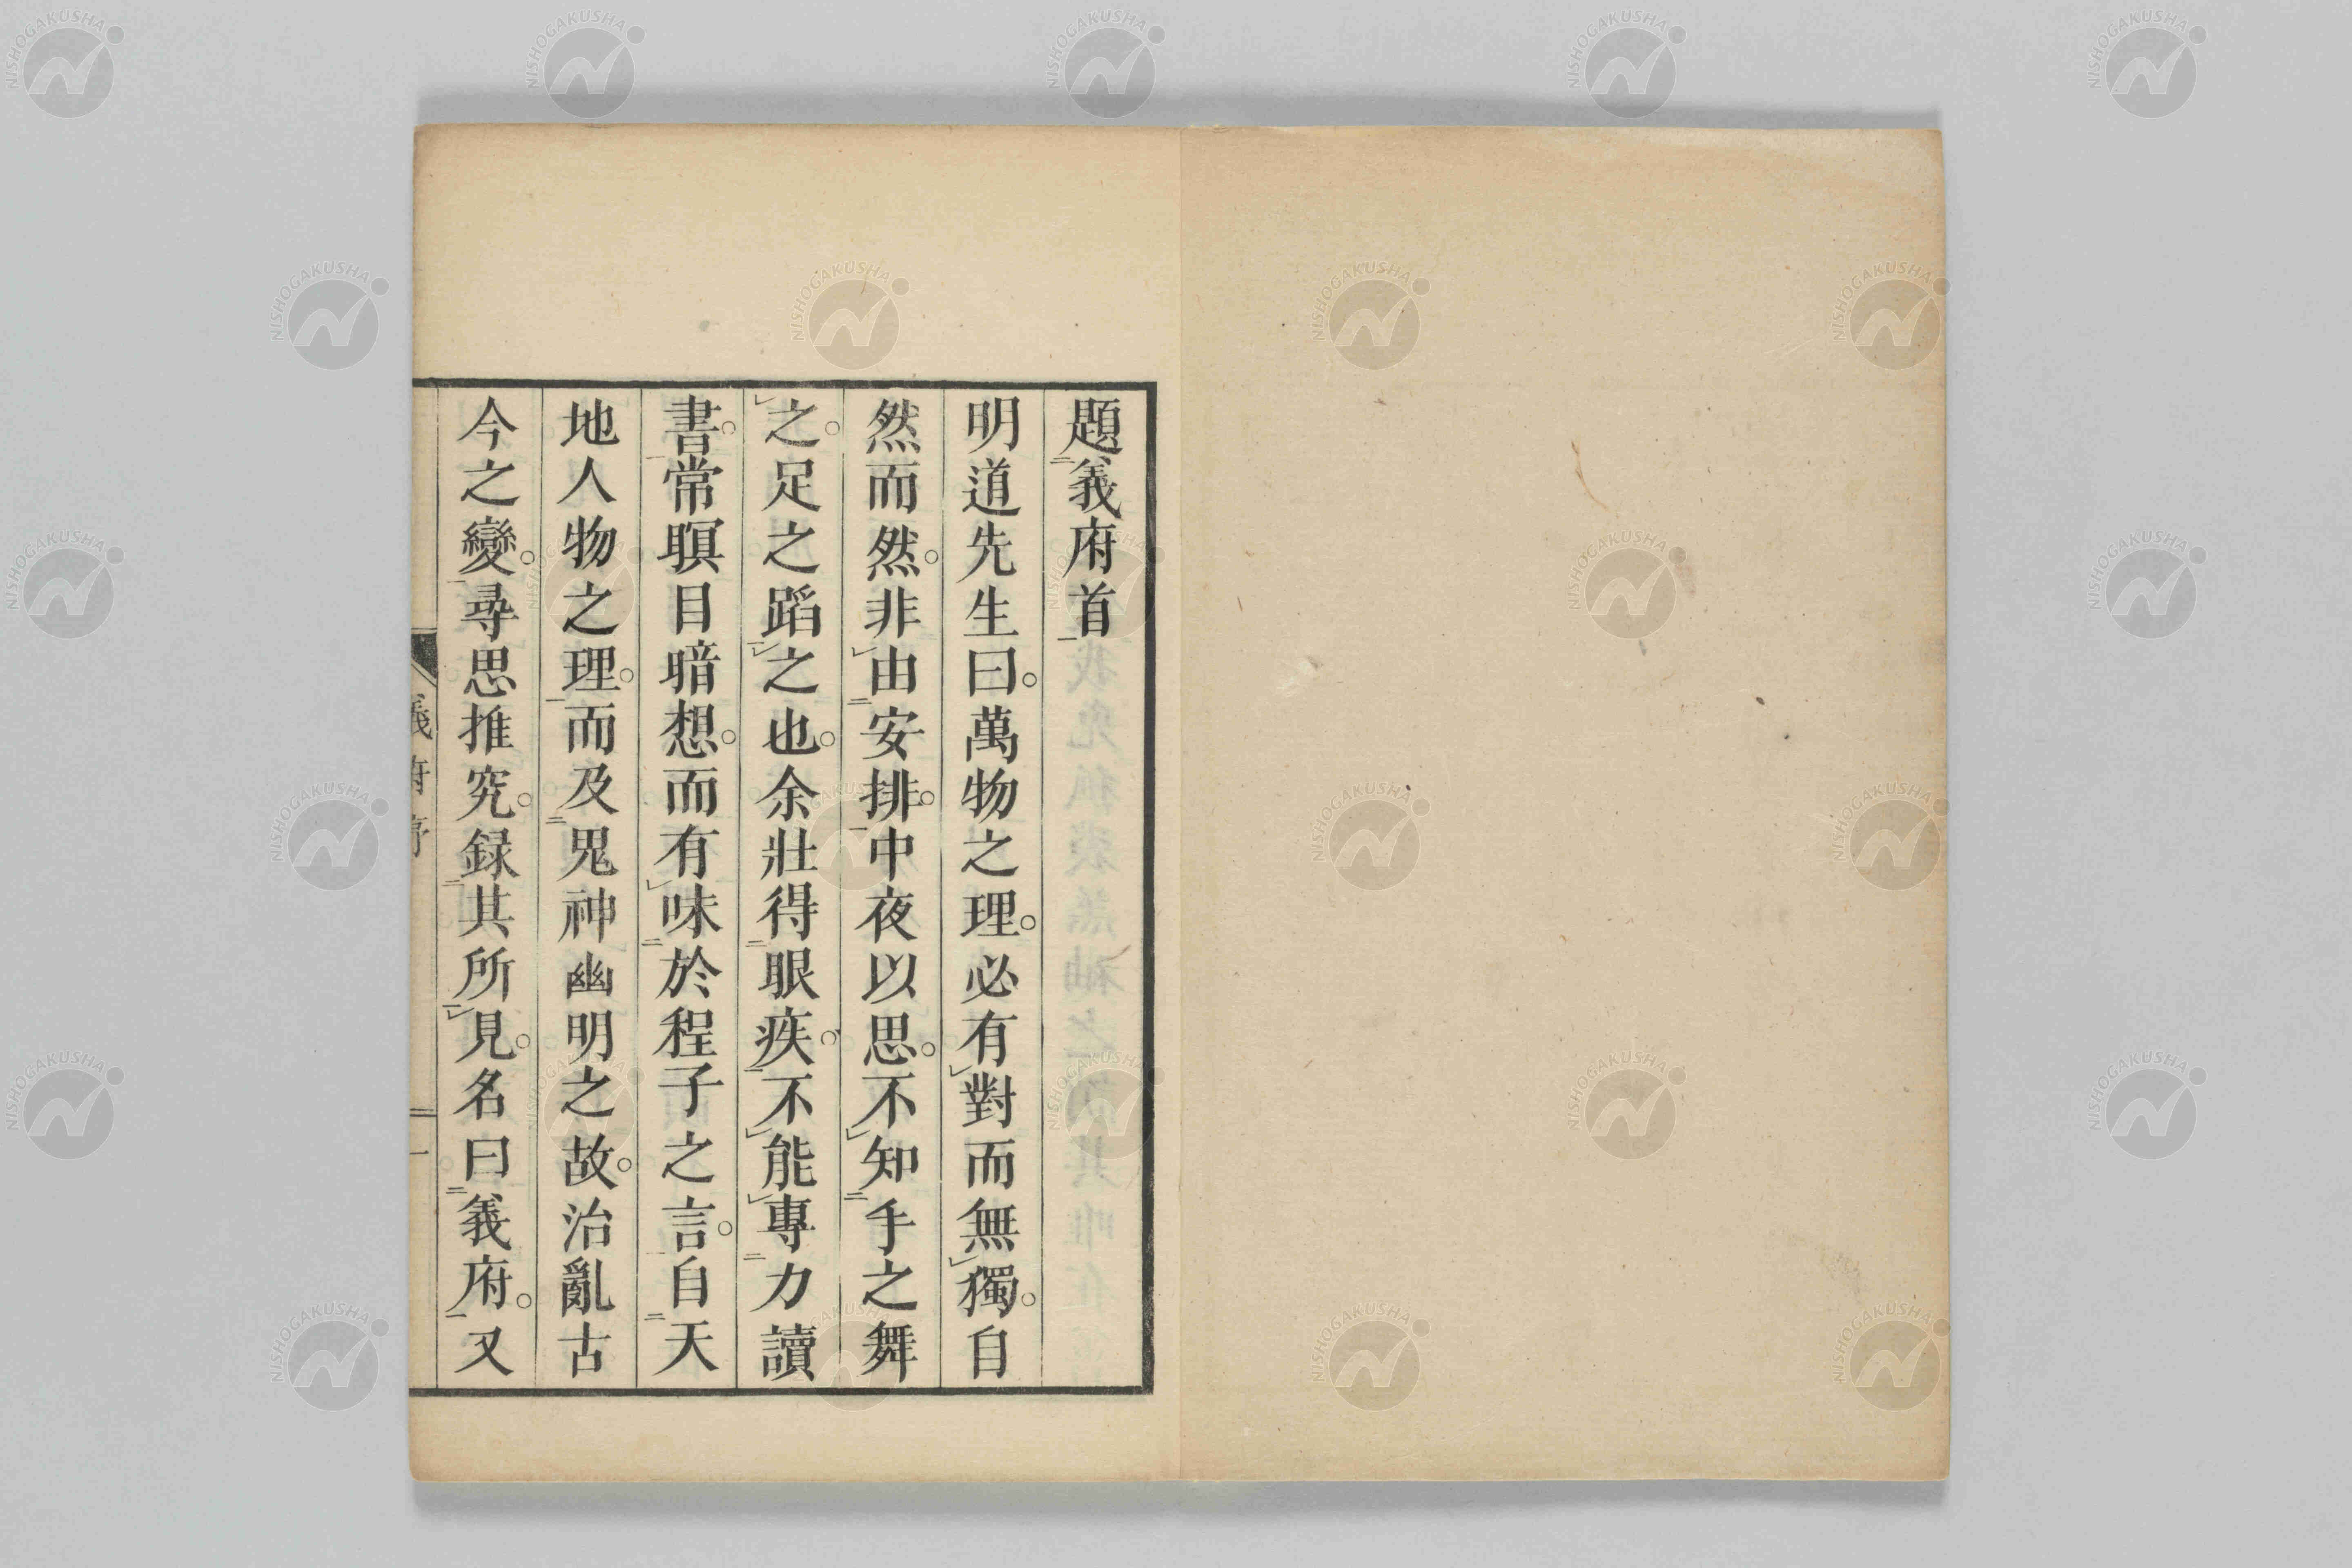 題義府首
明道先生曰。萬物之理。必有對而無獨。自
然而然。非由安排。中夜以思。不知手之舞
之。足之蹈之也。余壯得眼疾。不能專力讀
書。常瞑目暗想。而有味於程子之言。自天
地人物之理。而及鬼神幽明之故。治亂古
今之變。尋思推究。録其所見。名曰義府。又
義府序
一
NISHOGAKUSHA